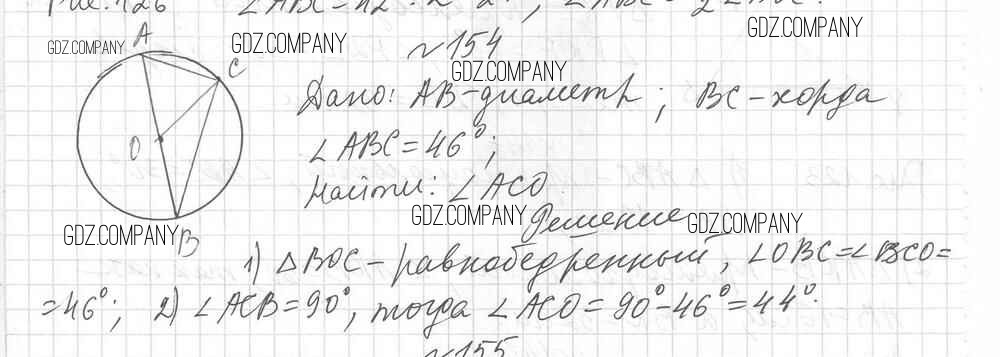 Рис. 126 ∠ABC = 42°
GDZ.COMPANY
GDZ.COMPANY A GDZ.COMPANY
№154
C GDZ.COMPANY
Дано: AB – диаметр; BC – хорда
O ∠ABC = 46°;
Найти: ∠ACO
GDZ.COMPANY Решение GDZ.COMPANY
GDZ.COMPANY B
1) △BOC – равнобедренный, ∠OBC = ∠BCO =
= 46°; 2) ∠ACB = 90°, тогда ∠ACO = 90° – 46° = 44°.
№155